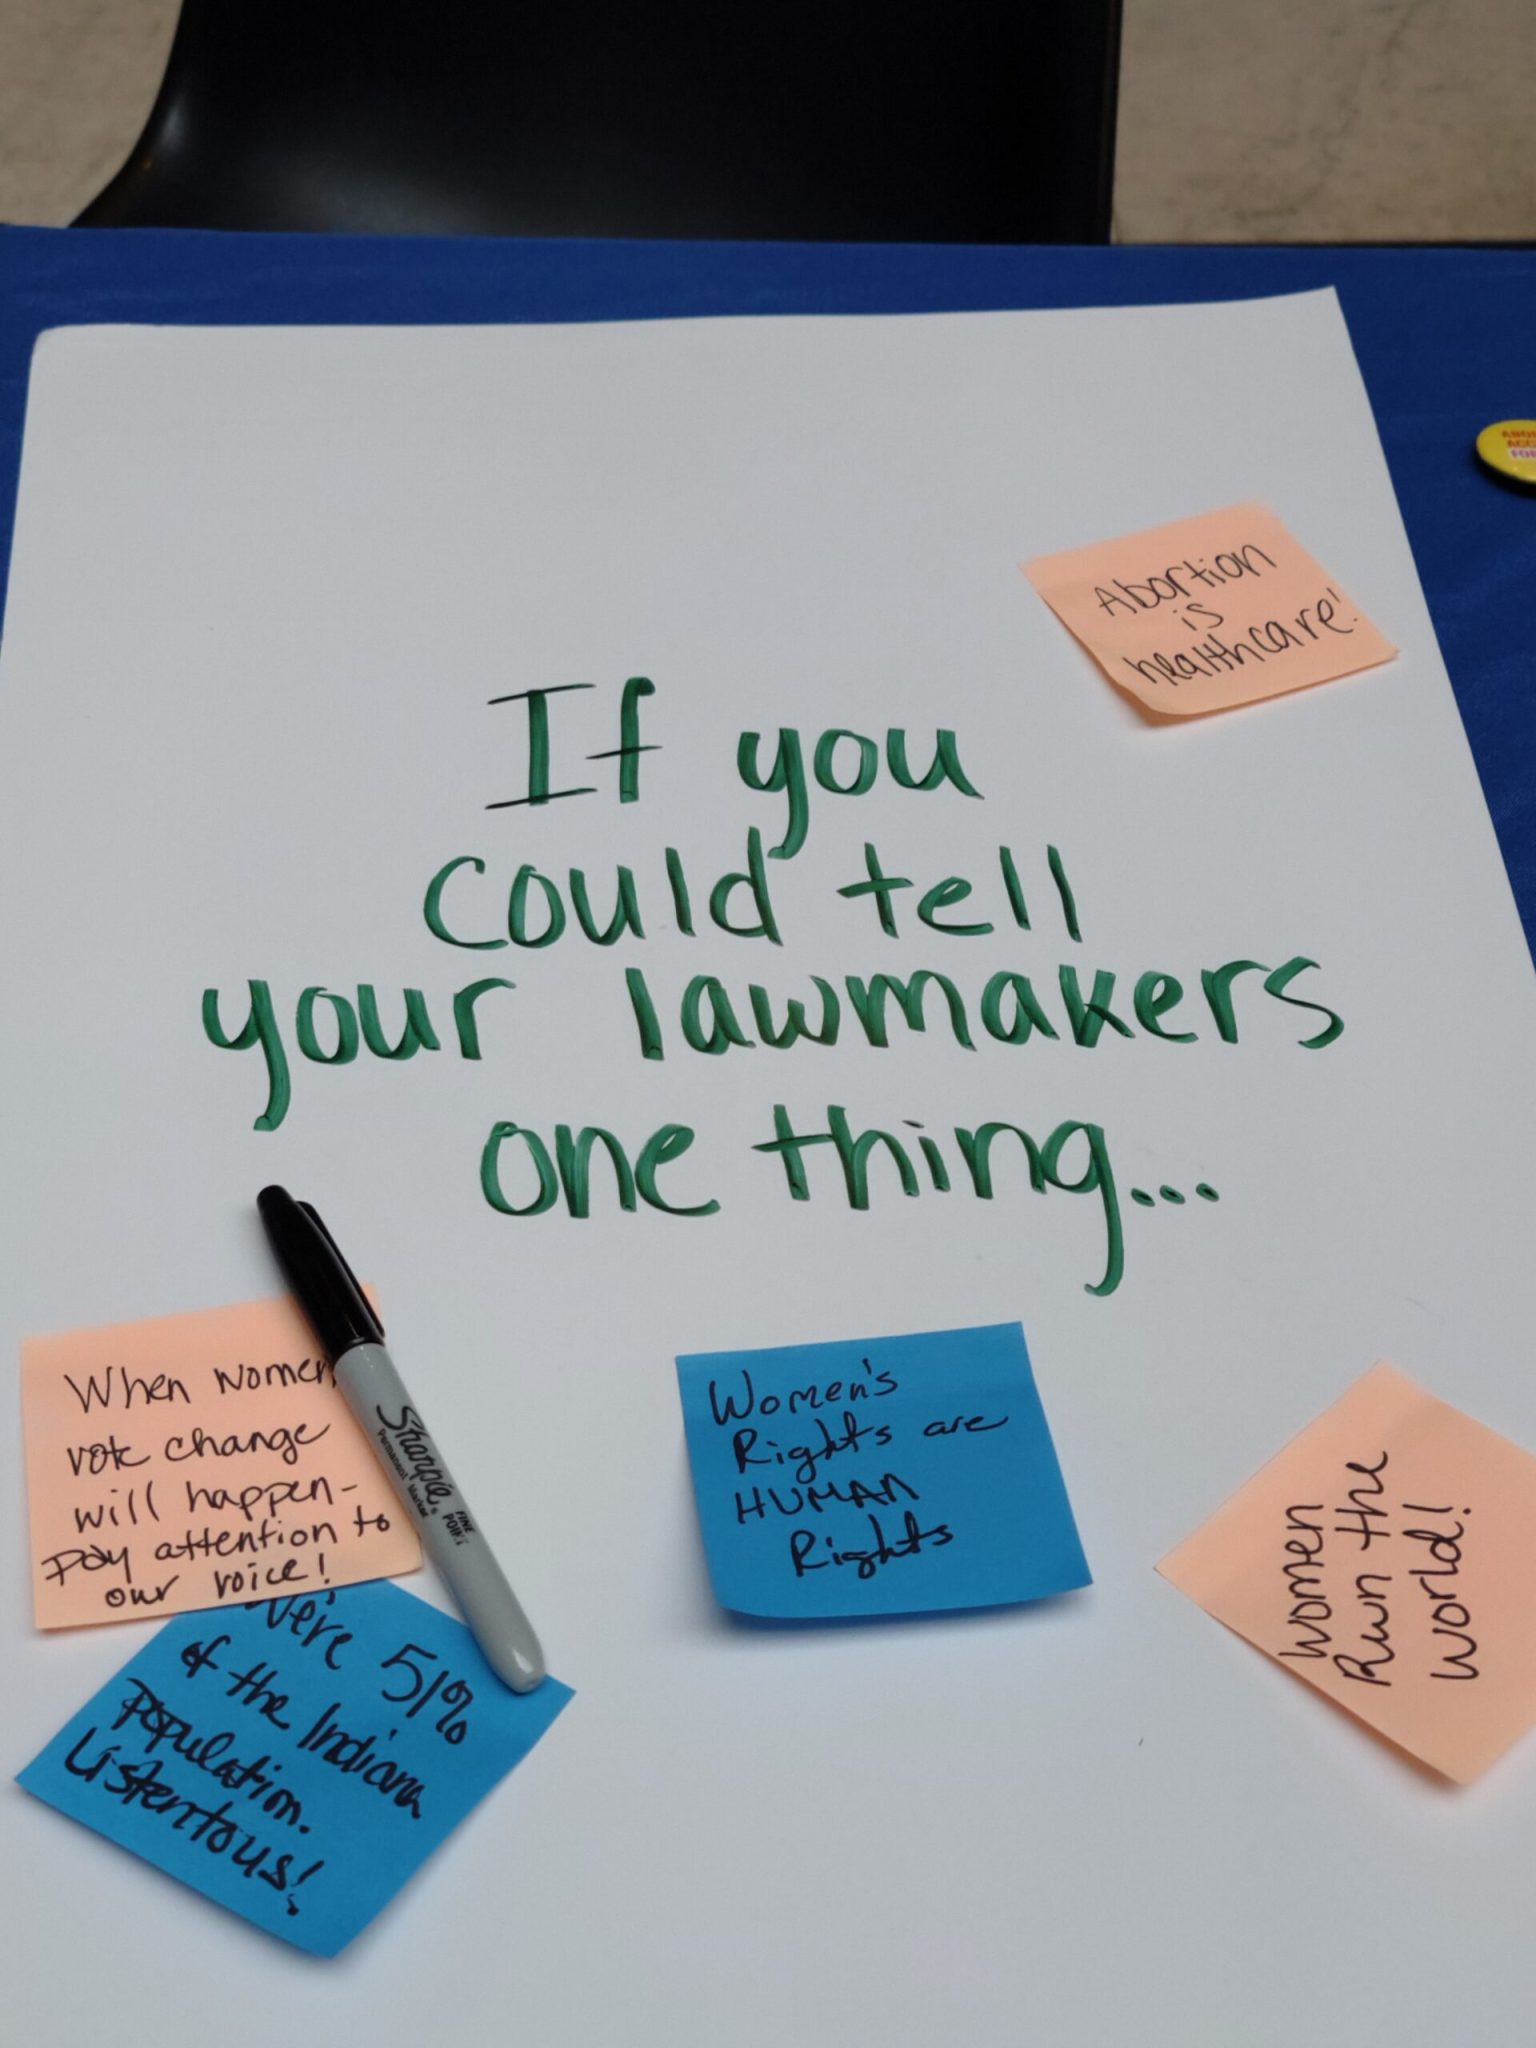 ACC
FOR
Abortion
is
healthcare!
If you
could tell
your lawmakers
one thing...
When women
vote change
will happen-
Pay attention to
our voice!
Sharpie
Permanent Marker
FINE
POINT
We're 51%
of the Indiana
Population.
Listen to us!
Women's
Rights are
HUMAN
Rights
Women
Run the
World!